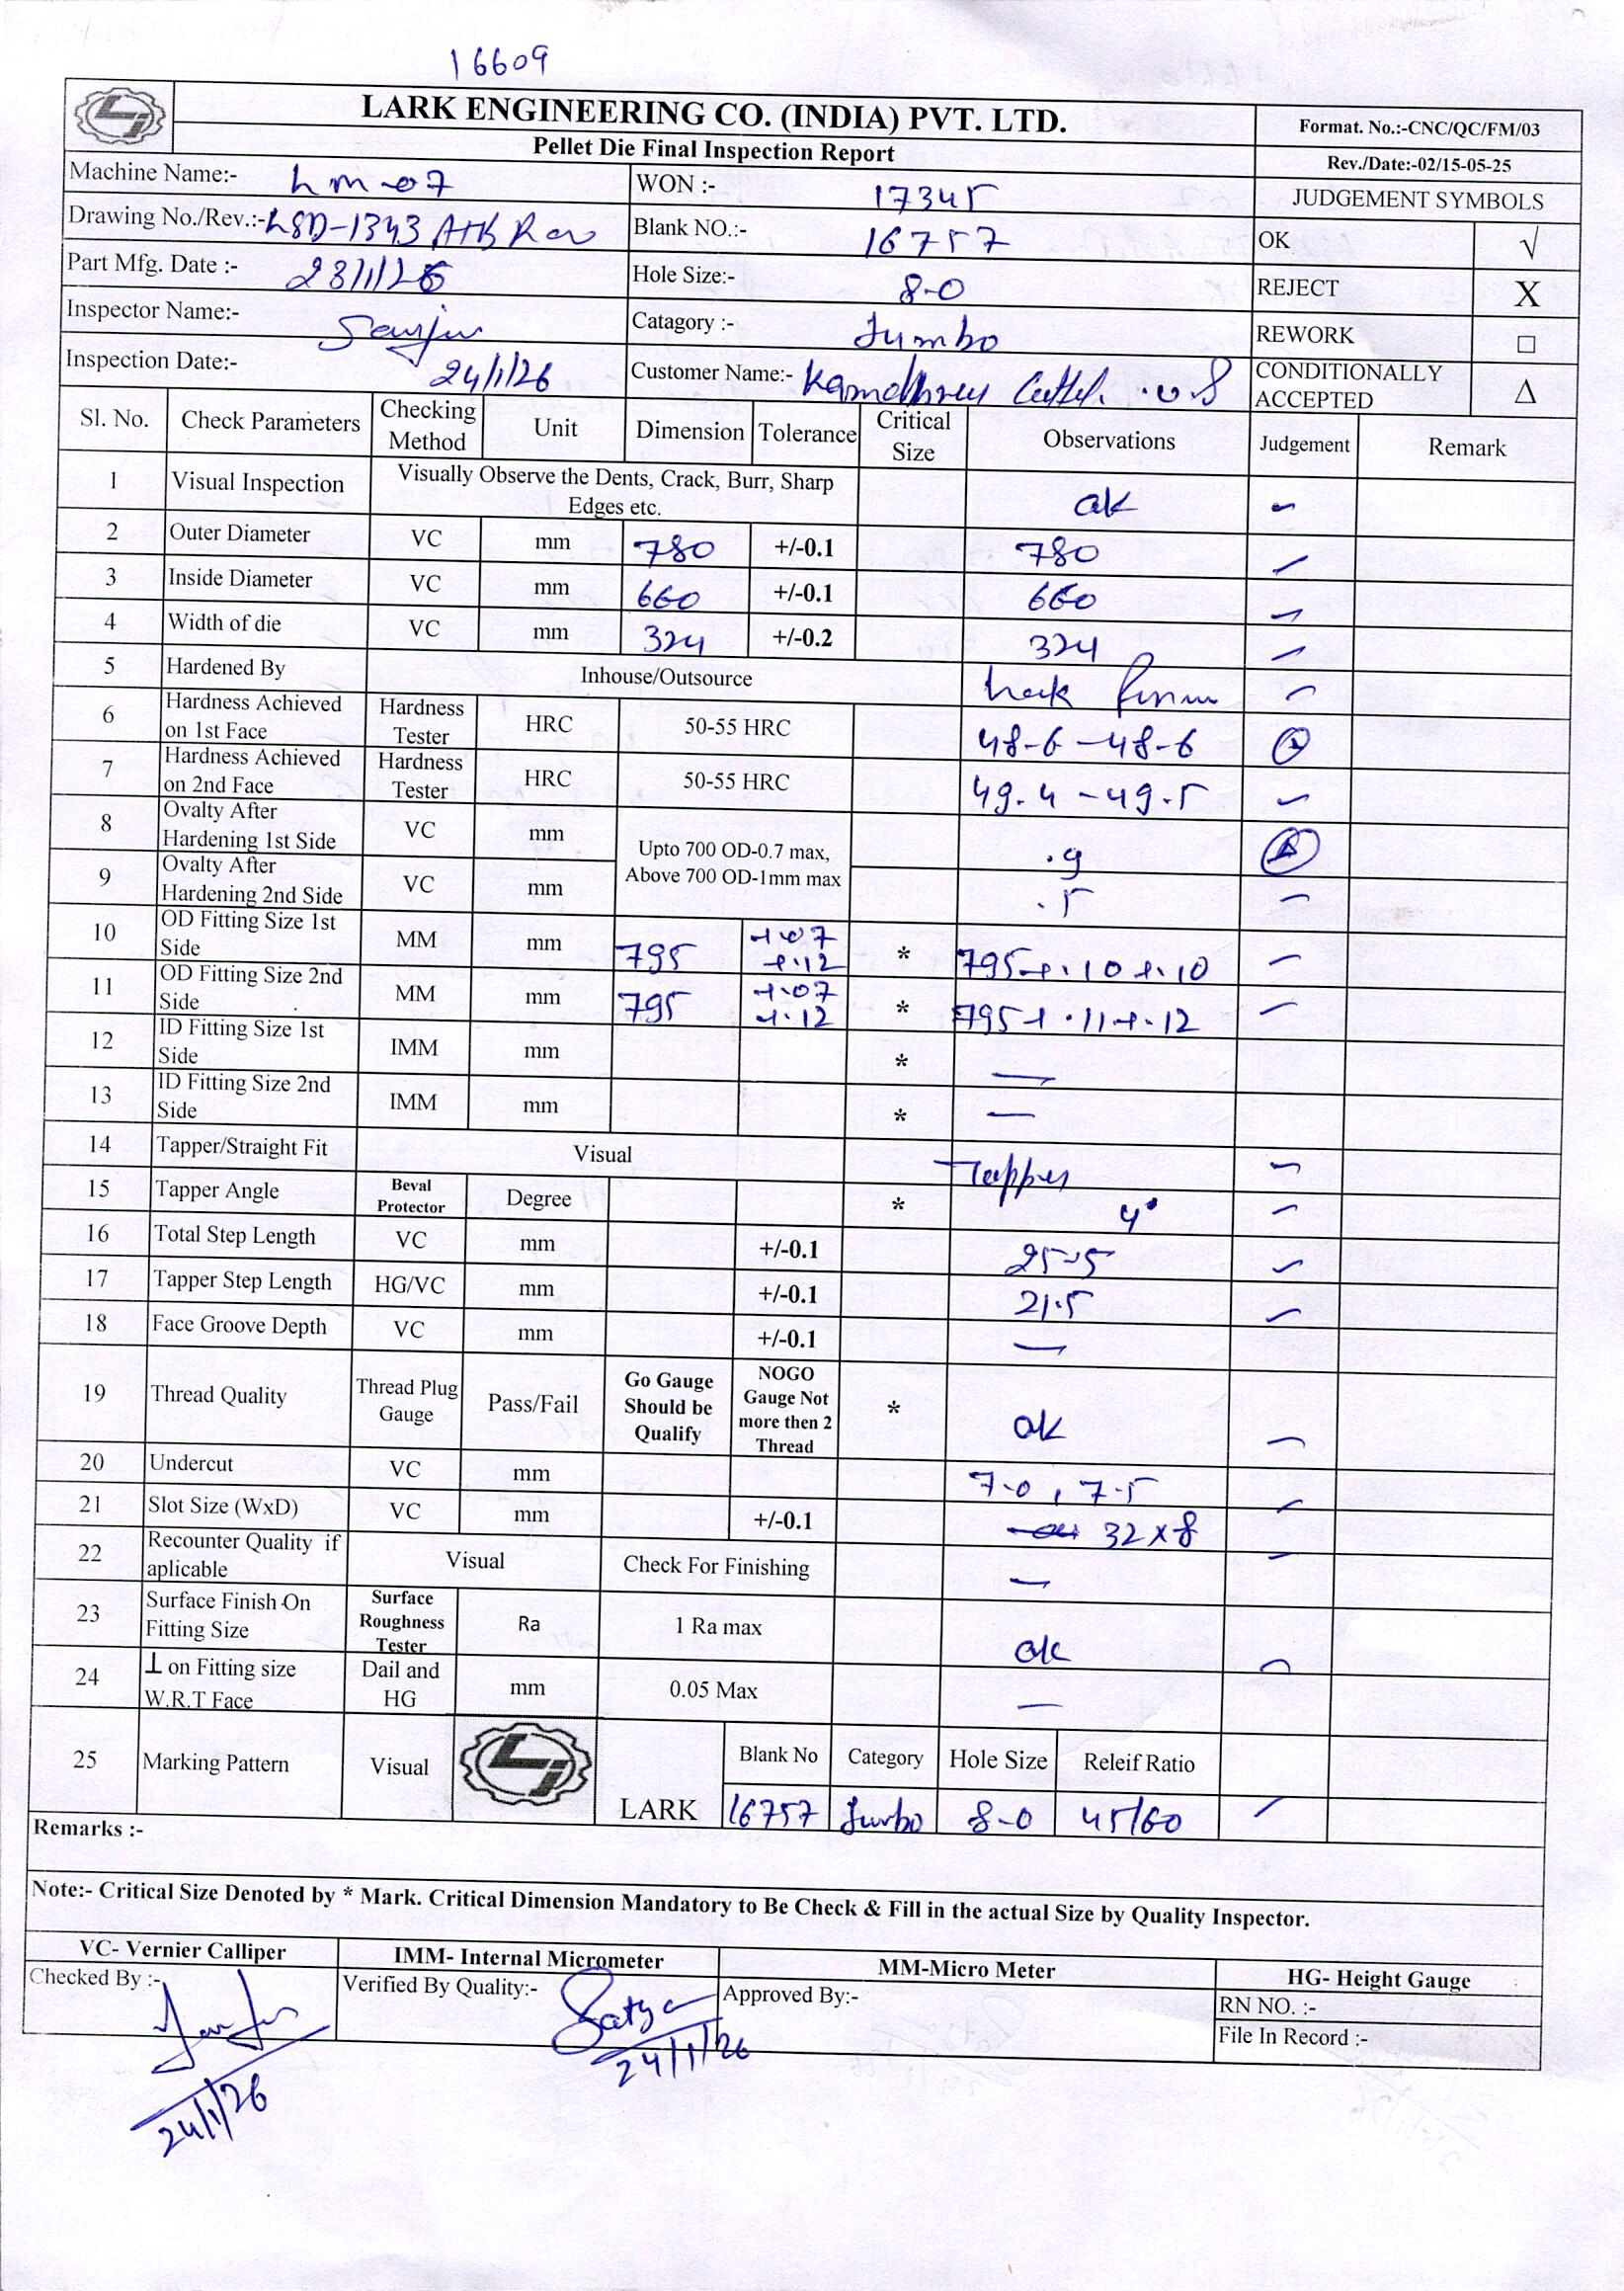 16609
LARK ENGINEERING CO. (INDIA) PVT. LTD.
Pellet Die Final Inspection Report
Format. No.:-CNC/QC/FM/03
Rev./Date:-02/15-05-25
Machine Name:- Lm-07 WON :- 17345 JUDGEMENT SYMBOLS
Drawing No./Rev.:- LSD-1343 Blank NO.:- 16757 OK √
Part Mfg. Date :- 23/1/26 Hole Size:- 8-0 REJECT X
Inspector Name:- Sanju Catagory :- Jumbo REWORK □
Inspection Date:- 24/1/26 Customer Name:- CONDITIONALLY ACCEPTED Δ
Sl. No. Check Parameters Checking Method Unit Dimension Tolerance Critical Size Observations Judgement Remark
1 Visual Inspection Visually Observe the Dents, Crack, Burr, Sharp Edges etc. ok
2 Outer Diameter VC mm 780 +/-0.1 780
3 Inside Diameter VC mm 660 +/-0.1 660
4 Width of die VC mm 324 +/-0.2 324
5 Hardened By Inhouse/Outsource
6 Hardness Achieved on 1st Face Hardness Tester HRC 50-55 HRC 48-6 - 48-6
7 Hardness Achieved on 2nd Face Hardness Tester HRC 50-55 HRC 49.4 - 49.5
8 Ovalty After Hardening 1st Side VC mm Upto 700 OD-0.7 max, Above 700 OD-1mm max .9 Δ
9 Ovalty After Hardening 2nd Side VC mm .5
10 OD Fitting Size 1st Side MM mm 795 +.07 +.12 * 795 +.10 +.10
11 OD Fitting Size 2nd Side MM mm 795 +.07 +.12 * 795 +.11 +.12
12 ID Fitting Size 1st Side IMM mm * —
13 ID Fitting Size 2nd Side IMM mm * —
14 Tapper/Straight Fit Visual Tapper
15 Tapper Angle Beval Protector Degree * 4°
16 Total Step Length VC mm +/-0.1 25-5
17 Tapper Step Length HG/VC mm +/-0.1 21.5
18 Face Groove Depth VC mm +/-0.1 —
19 Thread Quality Thread Plug Gauge Pass/Fail Go Gauge Should be Qualify NOGO Gauge Not more then 2 Thread * ok
20 Undercut VC mm 7-0, 7-5
21 Slot Size (WxD) VC mm +/-0.1 32 x 8
22 Recounter Quality if aplicable Visual Check For Finishing —
23 Surface Finish On Fitting Size Surface Roughness Tester Ra 1 Ra max ok
24 ⊥ on Fitting size W.R.T Face Dail and HG mm 0.05 Max —
25 Marking Pattern Visual LARK Blank No Category Hole Size Releif Ratio
16757 Jumbo 8-0 45/60
Remarks :-
Note:- Critical Size Denoted by * Mark. Critical Dimension Mandatory to Be Check & Fill in the actual Size by Quality Inspector.
VC- Vernier Calliper IMM- Internal Micrometer MM-Micro Meter HG- Height Gauge
Checked By :- Verified By Quality:- Satya Approved By:- RN NO. :-
File In Record :-
24/1/26
24/1/26